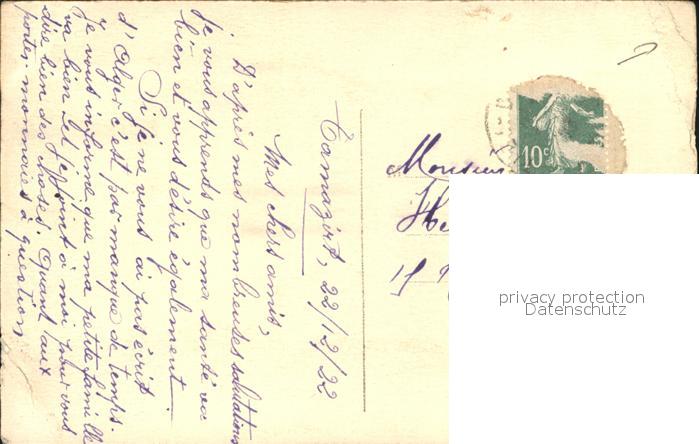 Tamazirt, 22/12/22
Mes chers amis,
D'après mes nombreuses salutations
je vous apprends que ma santé va
bien et vous désire également.
Si je ne vous ai pas écrit
d'Alger c'est par manque de temps.
Je vous informe que ma petite famille
va bien et se joint à moi pour vous
dire bien des choses. Quant aux
portes-monnaies à question
Monsieur
10c
privacy protection
Datenschutz